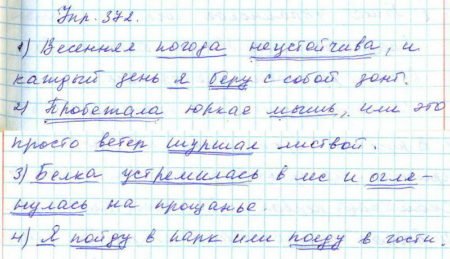 Упр. 372.
1) Весенняя погода неустойчива, и
каждый день я беру с собой зонт.
2) Пробежала юркая мышь, или это
просто ветер шуршал листвой.
3) Белка устремилась в лес и огля-
нулась на прощанье.
4) Я пойду в парк или поеду в гости.